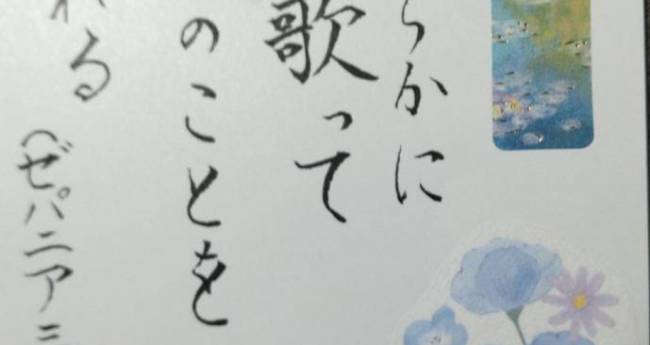 らかに
歌って
のことを
れる(ゼパニア三